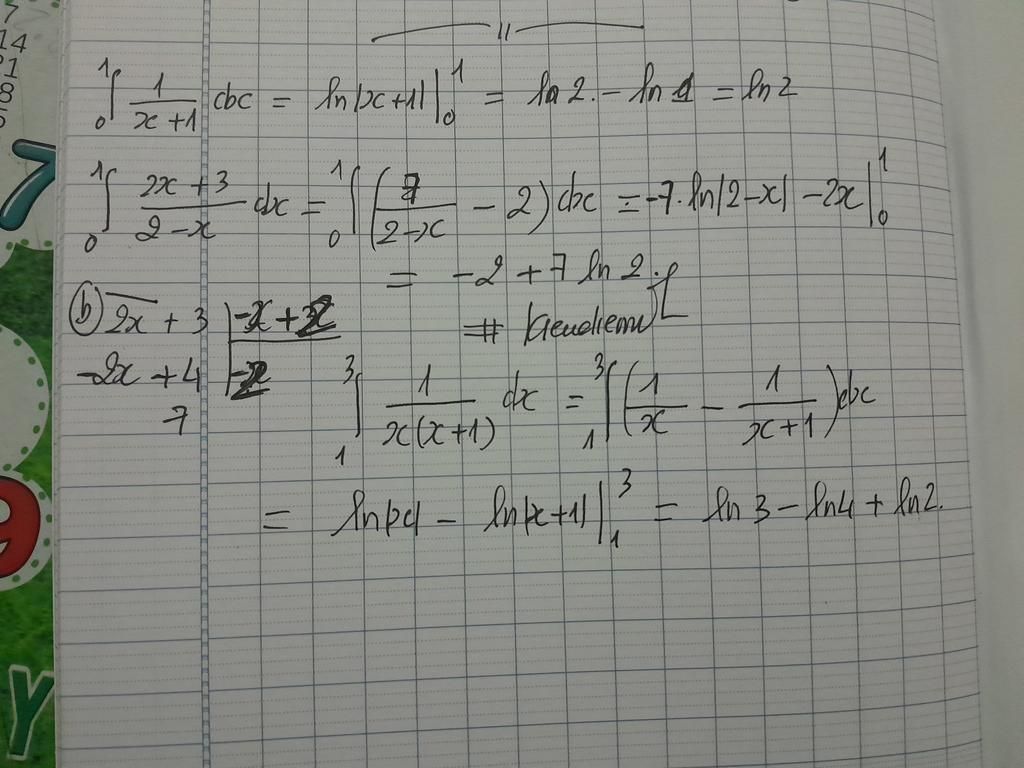 7
14
21
8
5
7
9
Y
∫₀¹ 1/(x+1) dx = ln|x+1| |₀¹ = ln 2 - ln 1 = ln 2
∫₀¹ (2x+3)/(2-x) dx = ∫₀¹ (7/(2-x) - 2) dx = -7.ln|2-x| - 2x |₀¹
= -2 + 7 ln 2.
b) 2x + 3 | -x + 2
-2x + 4 | -2
7
∫₁³ 1/(x(x+1)) dx = ∫₁³ (1/x - 1/(x+1)) dx
= ln|x| - ln|x+1| |₁³ = ln 3 - ln 4 + ln 2.